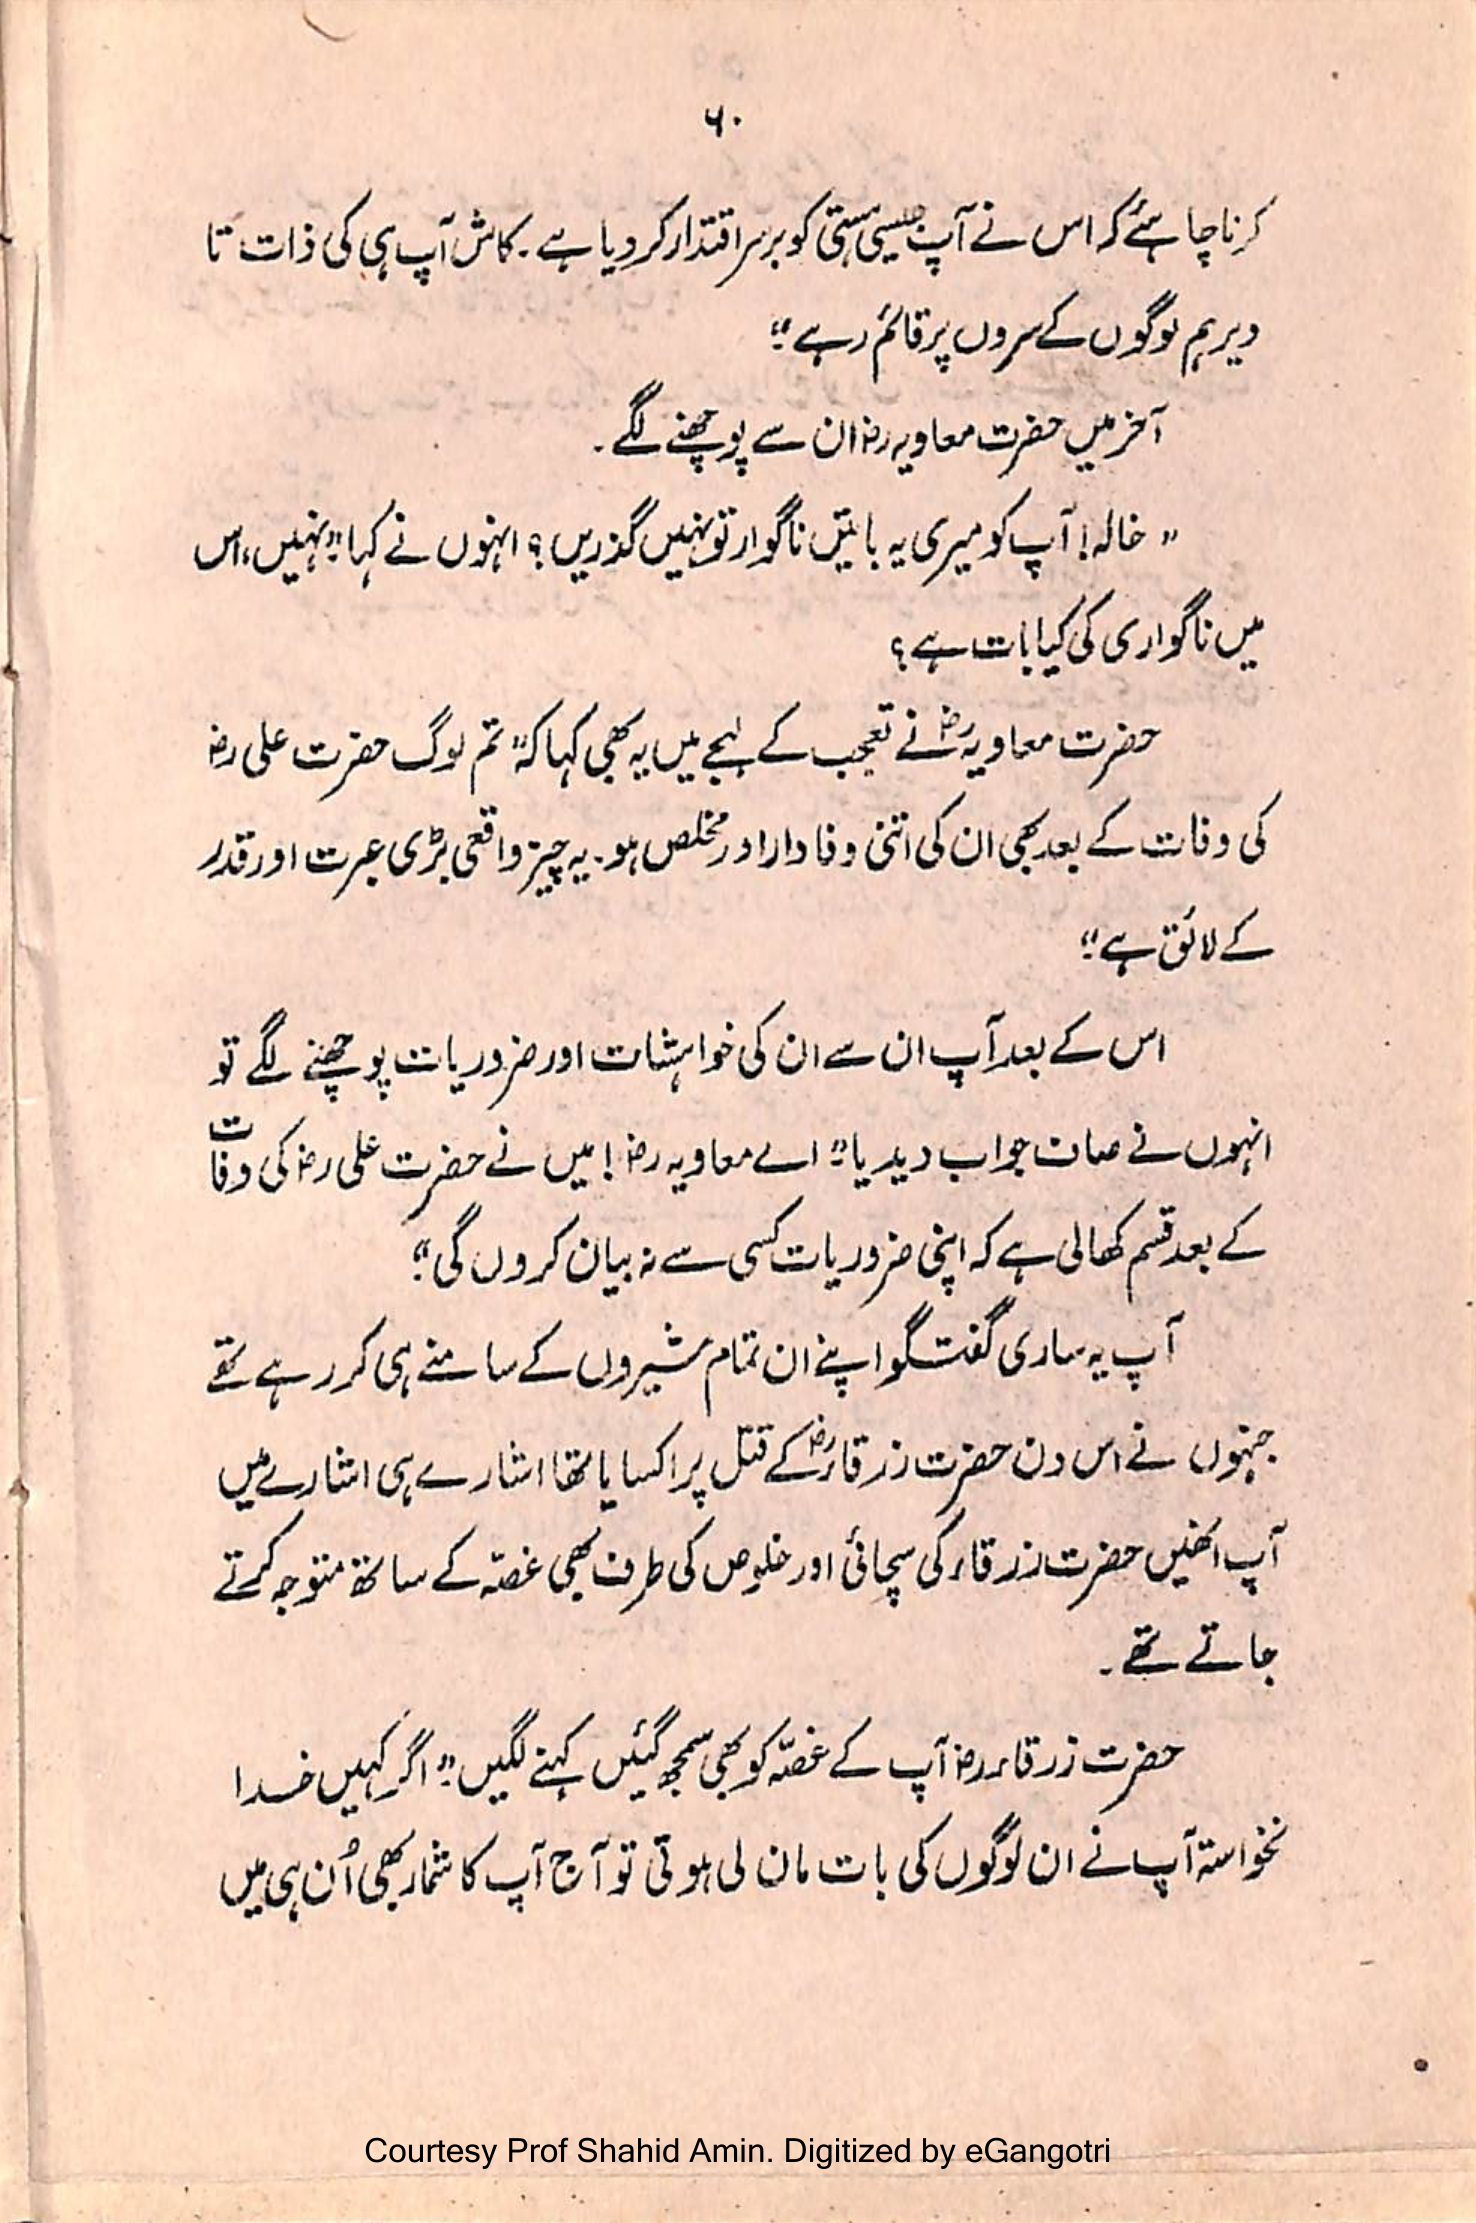 ۶۰
کرنا چاہئے کہ اس نے آپ جیسی ہستی کو برسراقتدار کر دیا ہے۔ کاش آپ ہی کی ذات تا
دیر ہم لوگوں کے سروں پر قائم رہے۔“
آخر میں حضرت معاویہ رضؓ ان سے پوچھنے لگے۔
” خالہ! آپ کو میری یہ باتیں ناگوار تو نہیں گذریں؟ انہوں نے کہا ”نہیں، اس
میں ناگواری کی کیا بات ہے؟
حضرت معاویہ رضؓ نے تعجب کے لہجے میں یہ بھی کہا کہ ” تم لوگ حضرت علی رضؓ
کی وفات کے بعد بھی ان کی اتنی وفادار اور مخلص ہو۔ یہ چیز واقعی بڑی عبرت اور قدر
کے لائق ہے۔“
اس کے بعد آپ ان سے ان کی خواہشات اور ضروریات پوچھنے لگے تو
انہوں نے صاف جواب دیدیا ” اے معاویہ رضؓ! میں نے حضرت علی رضؓ کی وفات
کے بعد قسم کھالی ہے کہ اپنی ضروریات کسی سے نہ بیان کروں گی۔“
آپ یہ ساری گفتگو اپنے ان تمام مشیروں کے سامنے ہی کر رہے تھے
جنہوں نے اس دن حضرت زرقاء رضؓ کے قتل پر اکسایا تھا اشارے ہی اشارے میں
آپ انھیں حضرت زرقاء کی سچائی اور خلوص کی طرف بھی غصّہ کے ساتھ متوجہ کرتے
جاتے تھے۔
حضرت زرقاء رضؓ آپ کے غصّہ کو بھی سمجھ گئیں کہنے لگیں ” اگر کہیں خدا
نخواستہ آپ نے ان لوگوں کی بات مان لی ہوتی تو آج آپ کا شمار بھی اُن ہی میں
Courtesy Prof Shahid Amin. Digitized by eGangotri